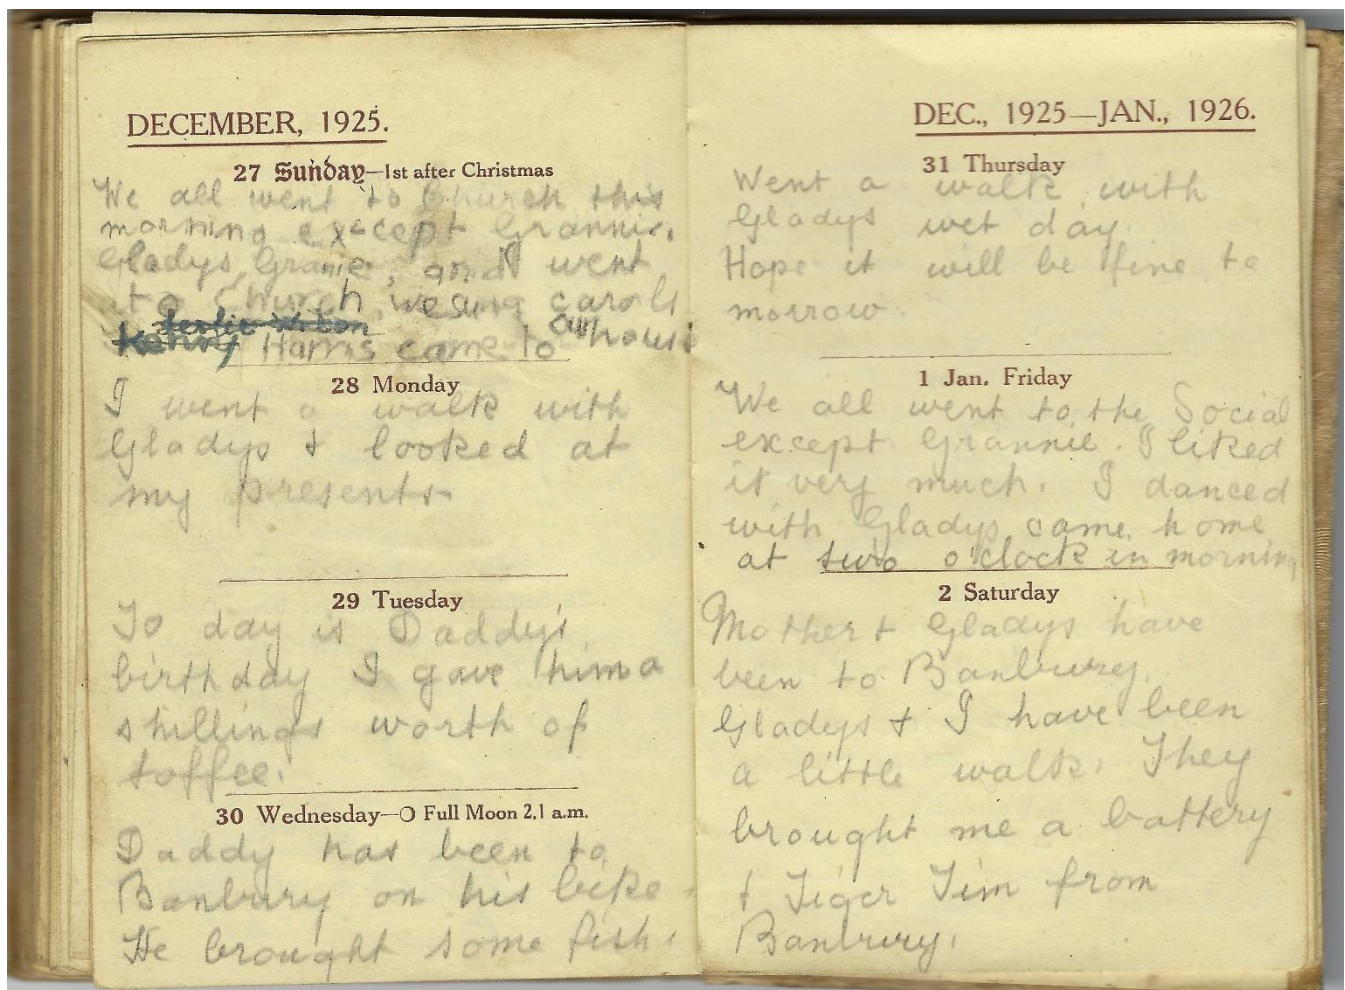 DECEMBER, 1925.
27 Sunday—1st after Christmas
We all went to Church this
morning except Grannie.
Gladys, Grannie, and I went
to Church, we sung carols
Leslie
Henry Harris came to our house
28 Monday
I went a walk with
Gladys & looked at
my presents
29 Tuesday
To day is Daddy's
birthday I gave him a
shillings worth of
toffee.
30 Wednesday—O Full Moon 2.1 a.m.
Daddy has been to
Banbury on his bike.
He brought some fish.
DEC., 1925—JAN., 1926.
31 Thursday
Went a walk with
Gladys wet day.
Hope it will be fine to
morrow.
1 Jan. Friday
We all went to the Social
except Grannie. I liked
it very much. I danced
with Gladys came home
at two o'clock in morning
2 Saturday
Mother & Gladys have
been to Banbury.
Gladys & I have been
a little walk. They
brought me a battery
& Tiger Tim from
Banbury.